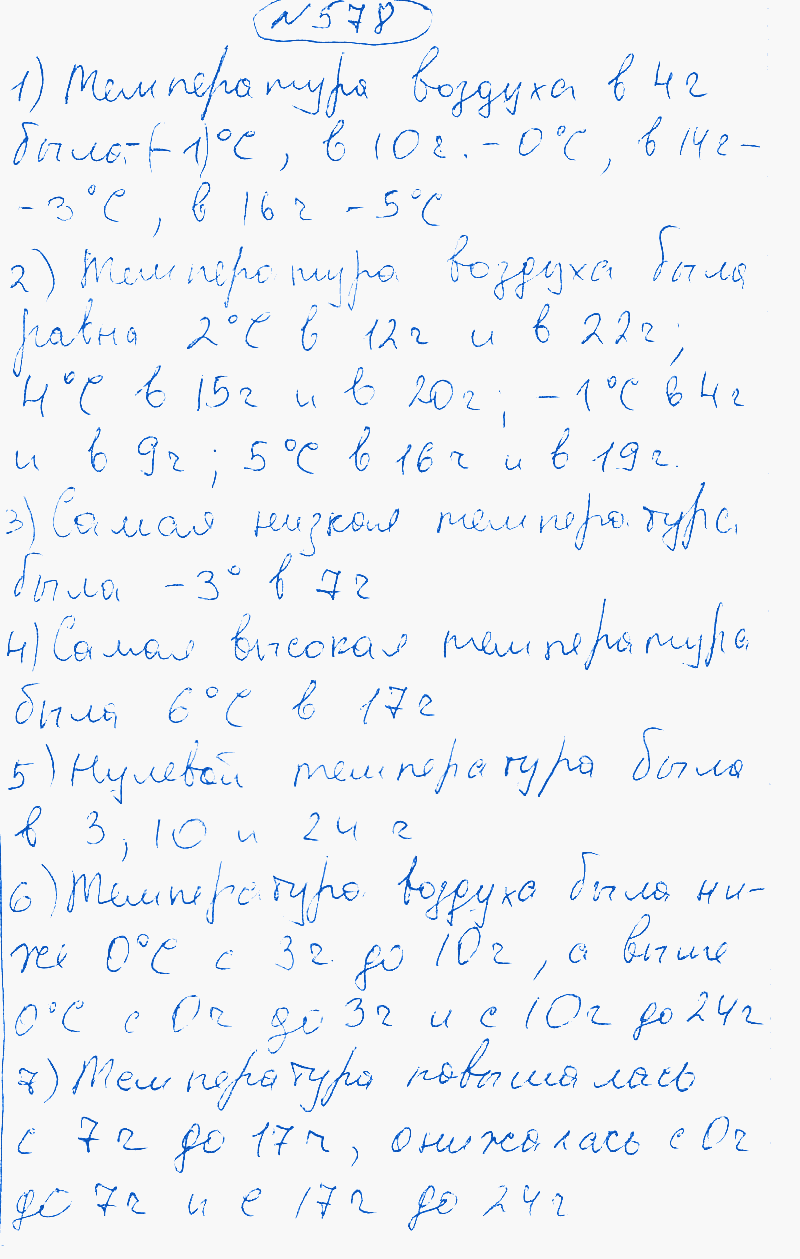 №578
1) Температура воздуха в 4г
была-(-1)°С, в 10г. - 0°С, в 14г -
- 3°С, в 16г - 5°С
2) Температура воздуха была
равна 2°С в 12г и в 22г;
4°С в 15г и в 20г; -1°С в 4г
и в 9г; 5°С в 16г и в 19г.
3) Самая низкая температура
была -3° в 7г
4) Самая высокая температура
была 6°С в 17г
5) Нулевой температура была
в 3, 10 и 24 г
6) Температура воздуха была ни-
же 0°С с 3г. до 10г, а выше
0°С с 0г до 3г и с 10г до 24г
7) Температура повышалась
с 7г до 17г, онижалась с 0г
до 7г и с 17г до 24г